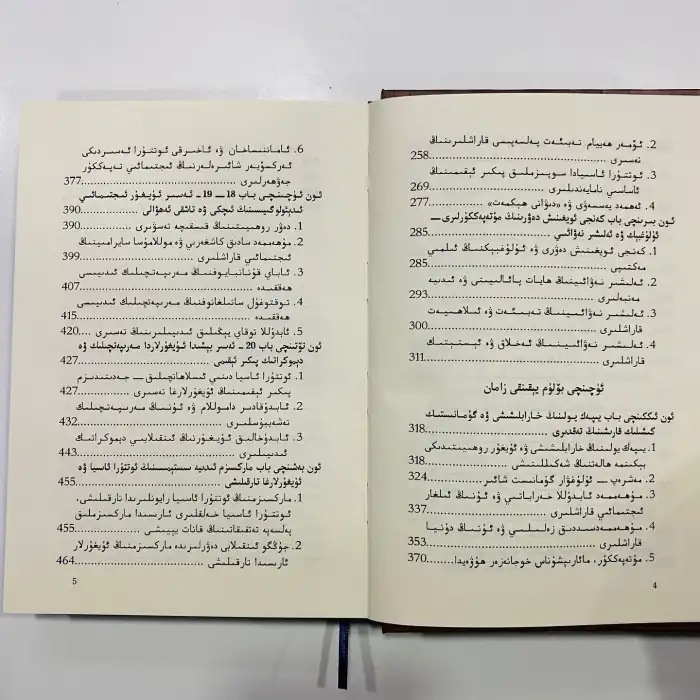 2. ئۆمەر ھەييام تەبىئەت پەلسەپىسى قاراشلىرىنىڭ
تەسىرى ........................ 258
3. ئوتتۇرا ئاسىيادا سوپىزملىق پىكىر ئېقىمىنىڭ
ئاساسىي نامايەندىلىرى ........................ 269
4. ئەھمەد يەسسەۋى ۋە «دىۋانى ھېكمەت» ........................ 277
ئون بىرىنچى باب كەنجى ئويغىنىش دەۋرىنىڭ مۇتەپەككۇرلىرى —
ئۇلۇغبېك ۋە ئەلىشىر نەۋائىي ........................ 285
1. كەنجى ئويغىنىش دەۋرى ۋە ئۇلۇغبېكنىڭ ئىلمىي
مەكتىپى ........................ 285
2. ئەلىشىر نەۋائىينىڭ ھايات پائالىيىتى ۋە ئىدىيە
مەنبەلىرى ........................ 293
3. ئەلىشىر نەۋائىينىڭ تەبىئەت ۋە ئىلاھىيەت
قاراشلىرى ........................ 300
4. ئەلىشىر نەۋائىينىڭ ئەخلاق ۋە ئېستېتىك
قاراشلىرى ........................ 311
ئۈچىنچى بۆلۈم يېقىنقى زامان
ئون ئىككىنچى باب يىپەك يولىنىڭ خارابلىشىشى ۋە گۇمانىستىك
كىشىلىك قارىشىنىڭ تەقدىرى ........................ 318
1. يىپەك يولىنىڭ خارابلىشىشى ۋە ئۇيغۇر روھىيىتىدىكى
بېكىنمە ھالەتنىڭ شەكىللىنىشى ........................ 318
2. مەشرەپ — ئۇلۇغۋار گۇمانىست شائىر ........................ 324
3. مۇھەممەد ئابدۇللا خەراباتىي ۋە ئۇنىڭ ئىلغار
ئىجتىمائىي قاراشلىرى ........................ 337
4. مۇھەممەدسىددىق زەلىلىي ۋە ئۇنىڭ دۇنيا
قاراشلىرى ........................ 353
5. مۇتەپەككۇر، مائارىپشۇناس خوجانەزەر ھۇۋەيدا ........ 370
4
6. ئاماننىساخان ۋە ئاخىرقى ئوتتۇرا ئەسىردىكى
ئەركسۆيەر شائىرەلەرنىڭ ئىجتىمائىي تەپەككۇر
جەۋھەرلىرى ........................ 377
ئون ئۈچىنچى باب 18 — 19 - ئەسىر ئۇيغۇر ئىجتىمائىي
ئىدېئولوگىيىسىنىڭ ئىچكى ۋە تاشقى ئەھۋالى ........ 390
1. دەۋر روھىيىتىنىڭ قىسقىچە تەسۋىرى ........ 390
2. مۇھەممەد سادىق كاشغەرىي ۋە موللامۇسا سايرامىينىڭ
ئىجتىمائىي قاراشلىرى ........................ 399
3. ئاباي قۇنانبايوفنىڭ مەرىپەتچىلىك ئىدىيىسى
ھەققىدە ........................ 407
4. توختوغۇل ساتىلغانوفنىڭ مەرىپەتچىلىك ئىدىيىسى
ھەققىدە ........................ 415
5. ئابدۇللا توقاي يېڭىلىق ئىدىيىلىرىنىڭ تەسىرى .... 420
ئون تۆتىنچى باب 20 - ئەسىر بېشىدا ئۇيغۇرلاردا مەرىپەتچىلىك ۋە
دېموكراتىك پىكىر ئېقىمى ........................ 427
1. ئوتتۇرا ئاسىيا دىنىي ئىسلاھاتچىلىق — جەدىتىدىزم
پىكىر ئېقىمىنىڭ ئۇيغۇرلارغا تەسىرى ........ 427
2. ئابدۇقادىر داموللام ۋە ئۇنىڭ مەرىپەتچىلىك
تەشەببۇسلىرى ........................ 432
3. ئابدۇخالىق ئۇيغۇرنىڭ ئىنقىلابىي دېموكراتىك
ئىدىيىلىرى ........................ 443
ئون بەشىنچى باب ماركسىزم ئىدىيە سىستېمىسىنىڭ ئوتتۇرا ئاسىيا ۋە
ئۇيغۇرلارغا تارقىلىشى ........................ 455
1. ماركسىزمنىڭ ئوتتۇرا ئاسىيا رايونلىرىدا تارقىلىشى،
ئوتتۇرا ئاسىيا خەلقلىرى ئارىسىدا ماركسىزملىق
پەلسەپە تەتقىقاتىنىڭ قانات يېيىشى ........ 455
2. جۇڭگو ئىنقىلابى دەۋرلىرىدە ماركسىزمنىڭ ئۇيغۇرلار
ئارىسىدا تارقىلىشى ........................ 464
5